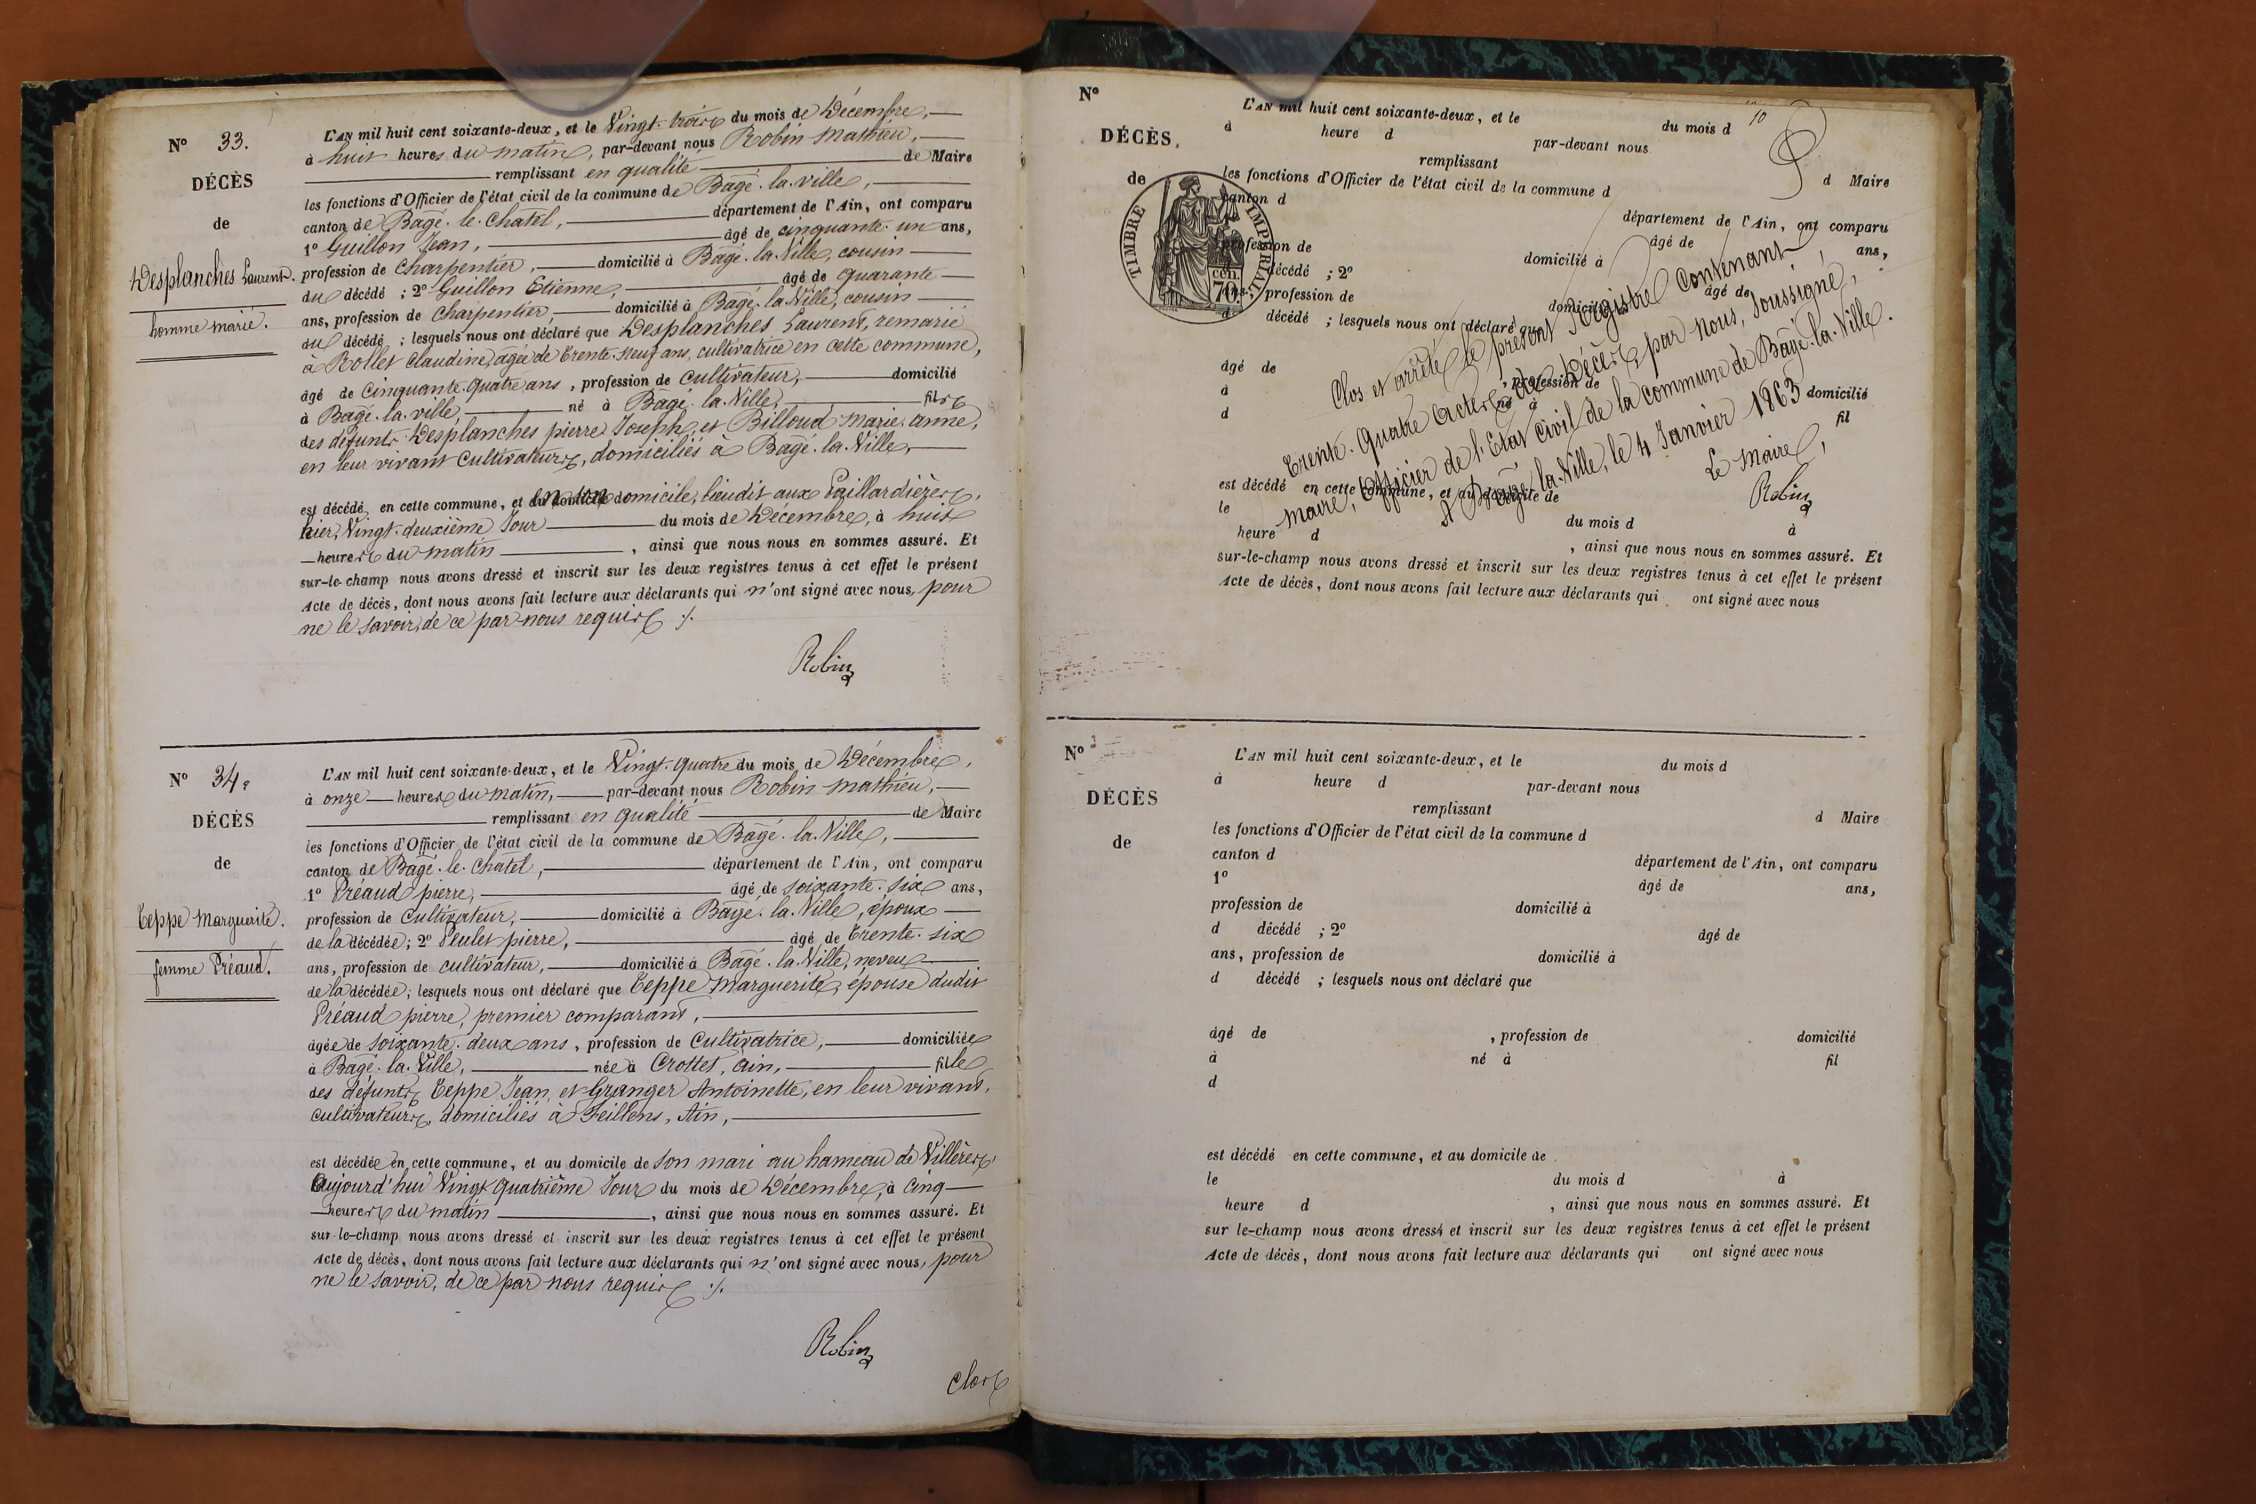 N° 33.
DÉCÈS
de
Desplanches Laurent.
homme marié.
L'AN mil huit cent soixante-deux, et le Vingt-trois du mois de Décembre,
à huit heures du matin, par-devant nous Robin Mathieu,
remplissant en qualité de Maire
les fonctions d'Officier de l'état civil de la commune de Bagé-la-ville,
canton de Bagé-le-Chatel, département de l'Ain, ont comparu
1° Guillon Jean, âgé de cinquante-un ans,
profession de Charpentier, domicilié à Bagé-la-Ville, cousin
du décédé ; 2° Guillon Etienne, âgé de quarante
ans, profession de Charpentier, domicilié à Bagé-la-Ville, cousin
du décédé ; lesquels nous ont déclaré que Desplanches Laurent, remarié
à Rollet Claudine, agée de trente-neuf ans, cultivatrice en cette commune,
âgé de Cinquante-quatre ans, profession de Cultivateur, domicilié
à Bagé-la-ville, né à Bagé-la-Ville, fils
des défunts Desplanches pierre Joseph, et Billoud Marie-anne,
en leur vivant Cultivateurs, domiciliés à Bagé-la-Ville,
est décédé en cette commune, et en son domicile, lieudit aux Paillardières,
hier, Vingt-deuxième Jour du mois de Décembre, à huit
heures du matin, ainsi que nous nous en sommes assuré. Et
sur-le-champ nous avons dressé et inscrit sur les deux registres tenus à cet effet le présent
Acte de décès, dont nous avons fait lecture aux déclarants qui n'ont signé avec nous, pour
ne le savoir, de ce par nous requis ./.
Robin
N° 34.
DÉCÈS
de
Teppe Marguerite.
femme Préaud.
L'AN mil huit cent soixante-deux, et le Vingt-quatre du mois de Décembre,
à onze heures du matin, par-devant nous Robin Mathieu,
remplissant en qualité de Maire
les fonctions d'Officier de l'état civil de la commune de Bagé-la-Ville,
canton de Bagé-le-Chatel, département de l'Ain, ont comparu
1° Préaud pierre, âgé de soixante-six ans,
profession de Cultivateur, domicilié à Bagé-la-Ville, époux
de la décédée ; 2° Peulet pierre, âgé de trente-six
ans, profession de cultivateur, domicilié à Bagé-la-Ville, neveu
de la décédée ; lesquels nous ont déclaré que Teppe Marguerite, épouse dudit
Préaud pierre, premier comparant,
âgée de soixante-deux ans, profession de Cultivatrice, domiciliée
à Bagé-la-Ville, née à Crottet, Ain, fille
des défunts Teppe Jean, et Granger Antoinette, en leur vivant,
cultivateurs, domiciliés à Feillens, Ain,
est décédée en cette commune, et au domicile de son mari au hameau de Villères,
Aujourd'hui Vingt-quatrième Jour du mois de Décembre, à Cinq
heures du matin, ainsi que nous nous en sommes assuré. Et
sur-le-champ nous avons dressé et inscrit sur les deux registres tenus à cet effet le présent
Acte de décès, dont nous avons fait lecture aux déclarants qui n'ont signé avec nous, pour
ne le savoir, de ce par nous requis ./.
Robin
Clos
10
N°
DÉCÈS
de
TIMBRE IMPÉRIAL
70 cen.
L'AN mil huit cent soixante-deux, et le du mois d
à heure d par-devant nous
remplissant d Maire
les fonctions d'Officier de l'état civil de la commune d
canton d département de l'Ain, ont comparu
âgé de ans,
profession de domicilié à
décédé ; 2° âgé de
ans, profession de domicilié à
d décédé ; lesquels nous ont déclaré que
âgé de , profession de domicilié
à né à fil
d
Clos et arrêté le présent Registre Contenant
trente-quatre actes de Décès, par nous, soussigné,
Maire, Officier de l'Etat Civil de la commune de Bagé-la-Ville.
A Bagé-la-Ville, le 4 Janvier 1863
Le Maire,
Robin
est décédé en cette commune, et au domicile de
le du mois d à
heure d , ainsi que nous nous en sommes assuré. Et
sur-le-champ nous avons dressé et inscrit sur les deux registres tenus à cet effet le présent
Acte de décès, dont nous avons fait lecture aux déclarants qui ont signé avec nous
N°
DÉCÈS
de
L'AN mil huit cent soixante-deux, et le du mois d
à heure d par-devant nous
remplissant d Maire
les fonctions d'Officier de l'état civil de la commune d
canton d département de l'Ain, ont comparu
1° âgé de ans,
profession de domicilié à
d décédé ; 2° âgé de
ans, profession de domicilié à
d décédé ; lesquels nous ont déclaré que
âgé de , profession de domicilié
à né à fil
d
est décédé en cette commune, et au domicile de
le du mois d à
heure d , ainsi que nous nous en sommes assuré. Et
sur le-champ nous avons dressé et inscrit sur les deux registres tenus à cet effet le présent
Acte de décès, dont nous avons fait lecture aux déclarants qui ont signé avec nous